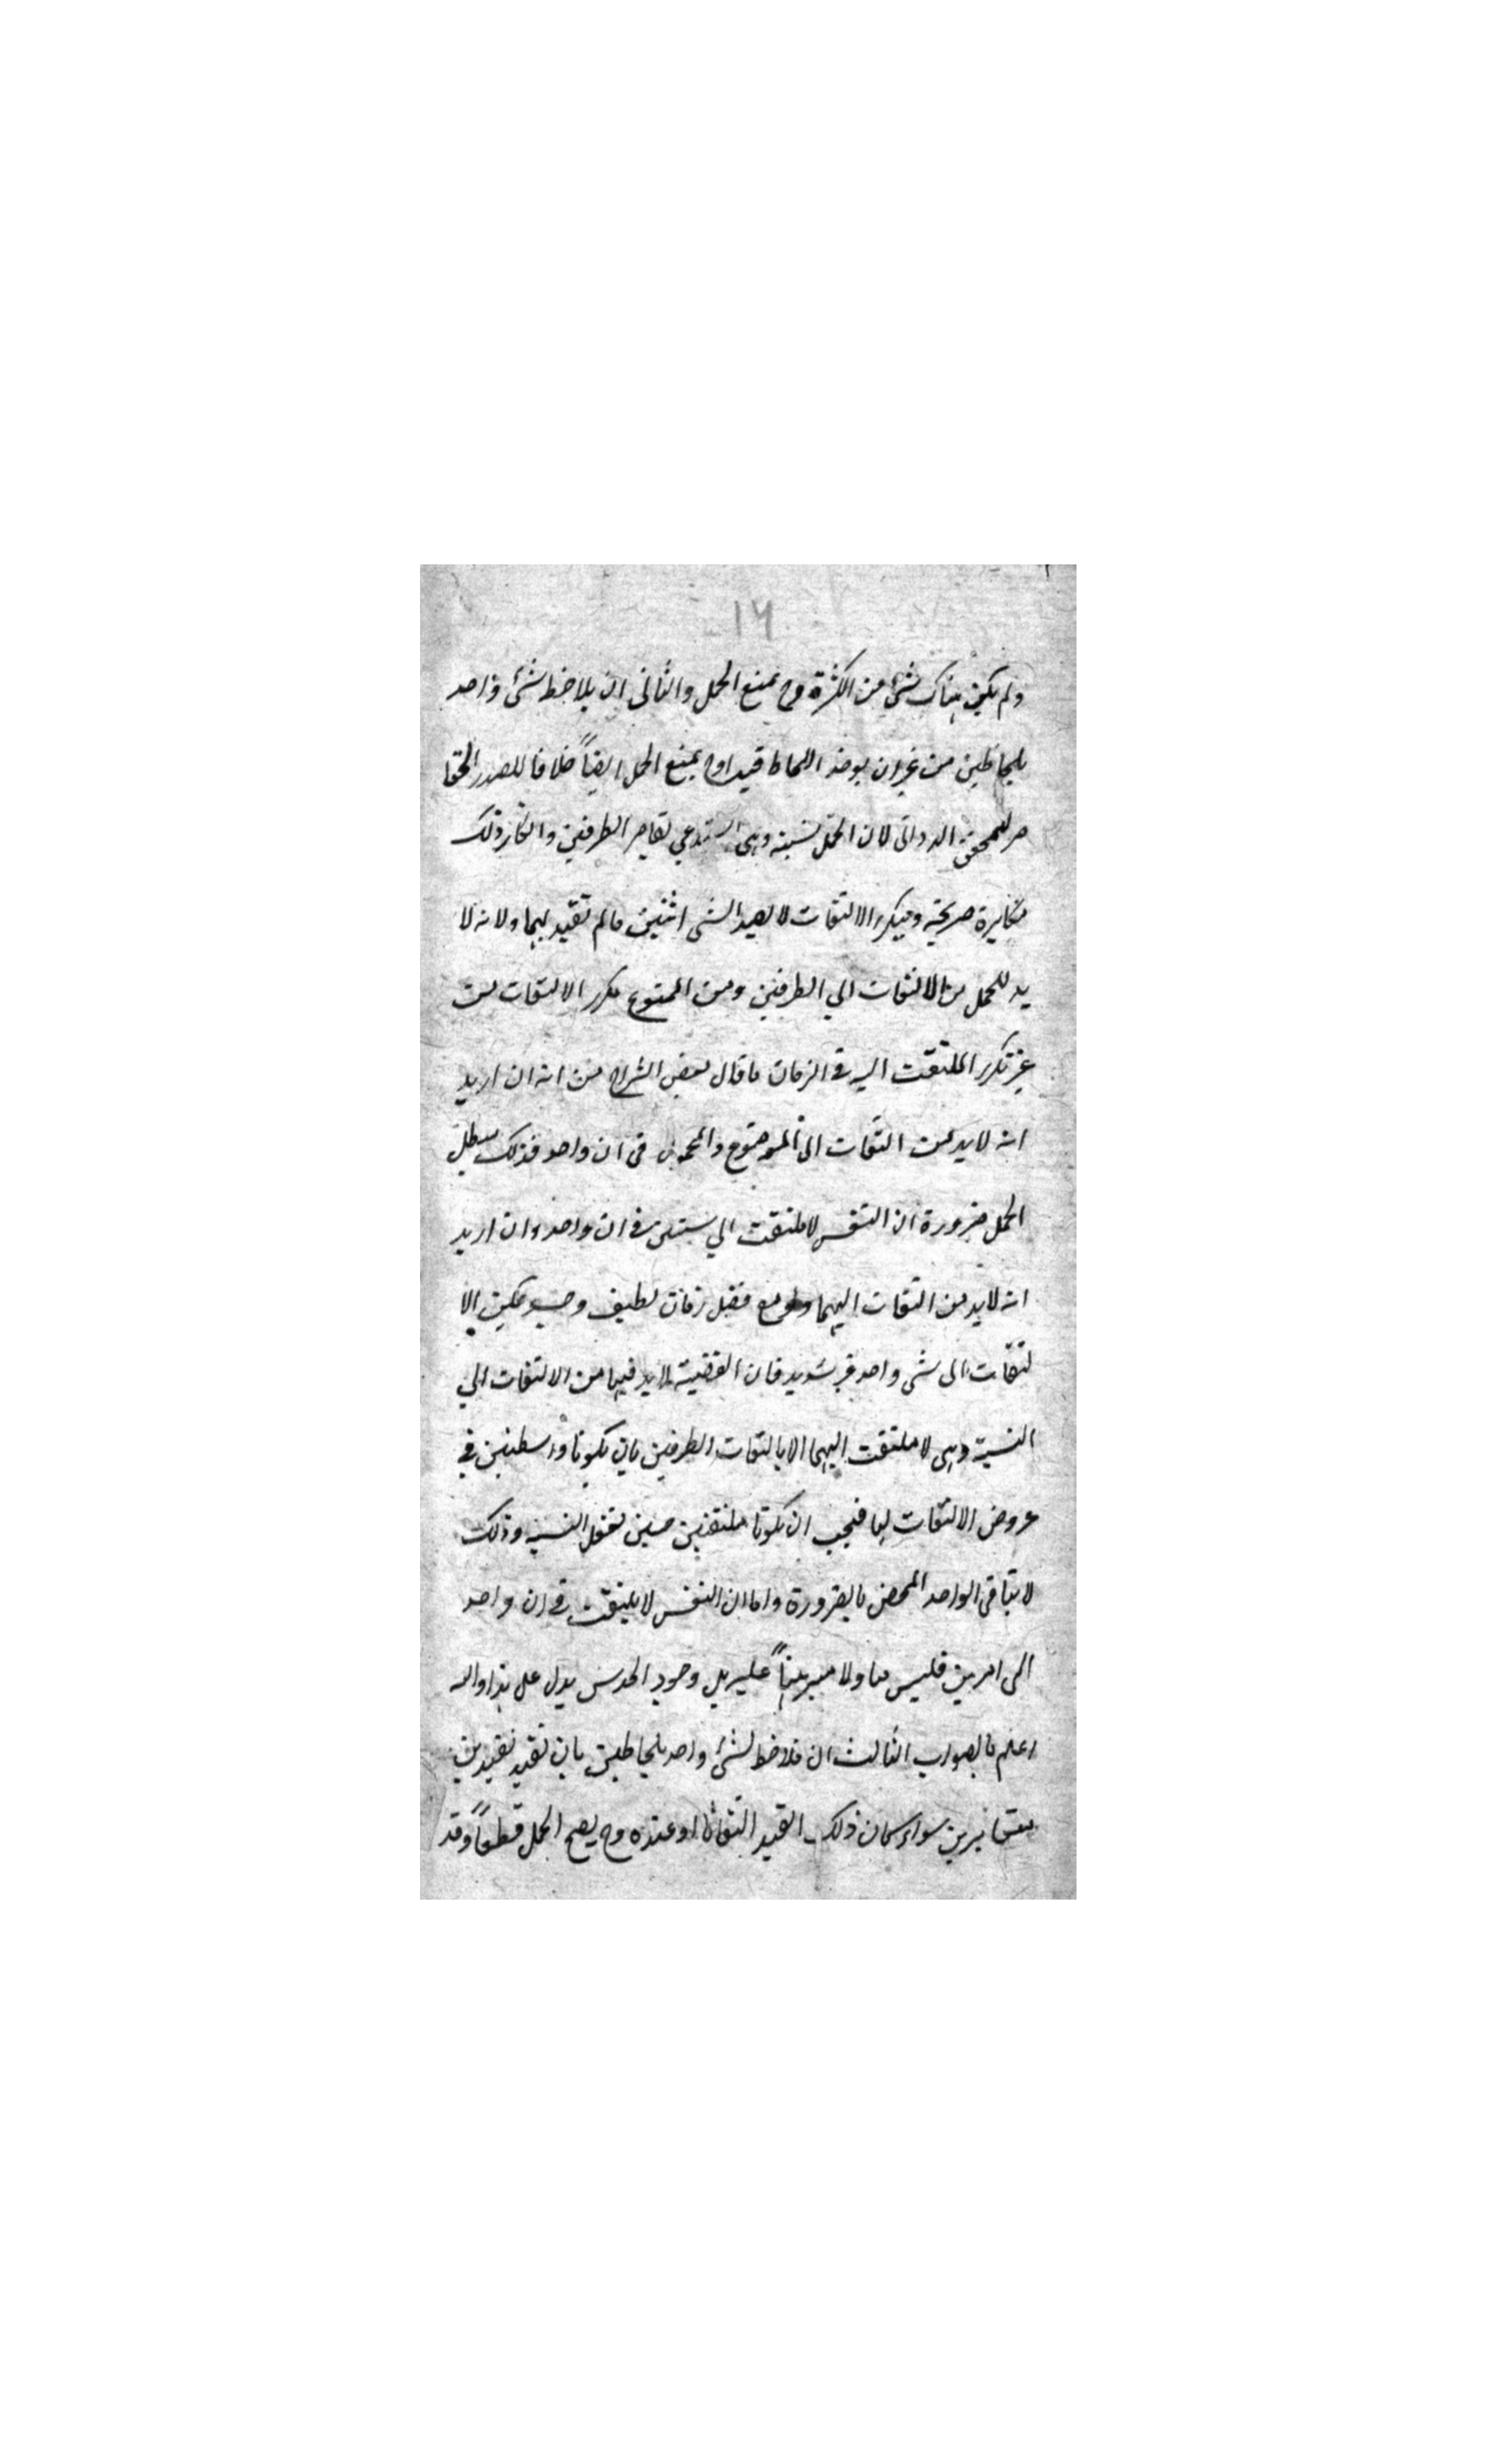 ١٦
ولم يكن هناك شئ من الكثرة وح يمنع الحمل والثانى ان يلاحظ شئ واحد
بلحاظين من غير ان يوخذ اللحاظ قيدا وح يمنع الحمل ايضاً خلافا للصدر المعا
صر للمحقق الدوانى لان الحمل نسبته وهى تستدعي تغاير الطرفين وانكار ذلك
مكابرة صريحة وبتكرر الالتفات لا يصير الشى اثنين مالم تقيد بهما ولانه لا
بد للحمل من الالتفات الي الطرفين ومن الممتنع تكرر الالتفات من
غير تكرر الملتفت اليه في الزمان ما قال بعض الشراح من انه ان اريد
انه لابد من التفات الى الموضوع والمحمول فى ان واحد فذلك يبطل
الحمل ضرورة ان النفس لا تلتفت الي شيئين في ان واحد وان اريد
انه لابد من التفات اليهما ولو مع فصل زمان لطيف وح يمكن الا
لتفات الى شى واحد غير سديد فان القضية لابد فيها من الالتفات الي
النسبة وهى لا تلتفت اليها الا بالتفات الطرفين بان يكونا واسطتين في
عروض الالتفات لها فيجب ان يكونا ملتفتين حين تعقل النسبة وذلك
لا يتاقى الواحد المحض بالضرورة واما ان النفس لا يلتفت في ان واحد
الى امرين فليس بينا ولا مبرهناً عليه بل وجود الحدس يدل على هذا والله
اعلم بالصواب الثالث ان يلاحظ لشئ واحد بلحاظين بان تقيد بقيدين
متغايرين سواء كان ذلك القيد التفاتا او عنده وح يصح الحمل قطعاً وقد